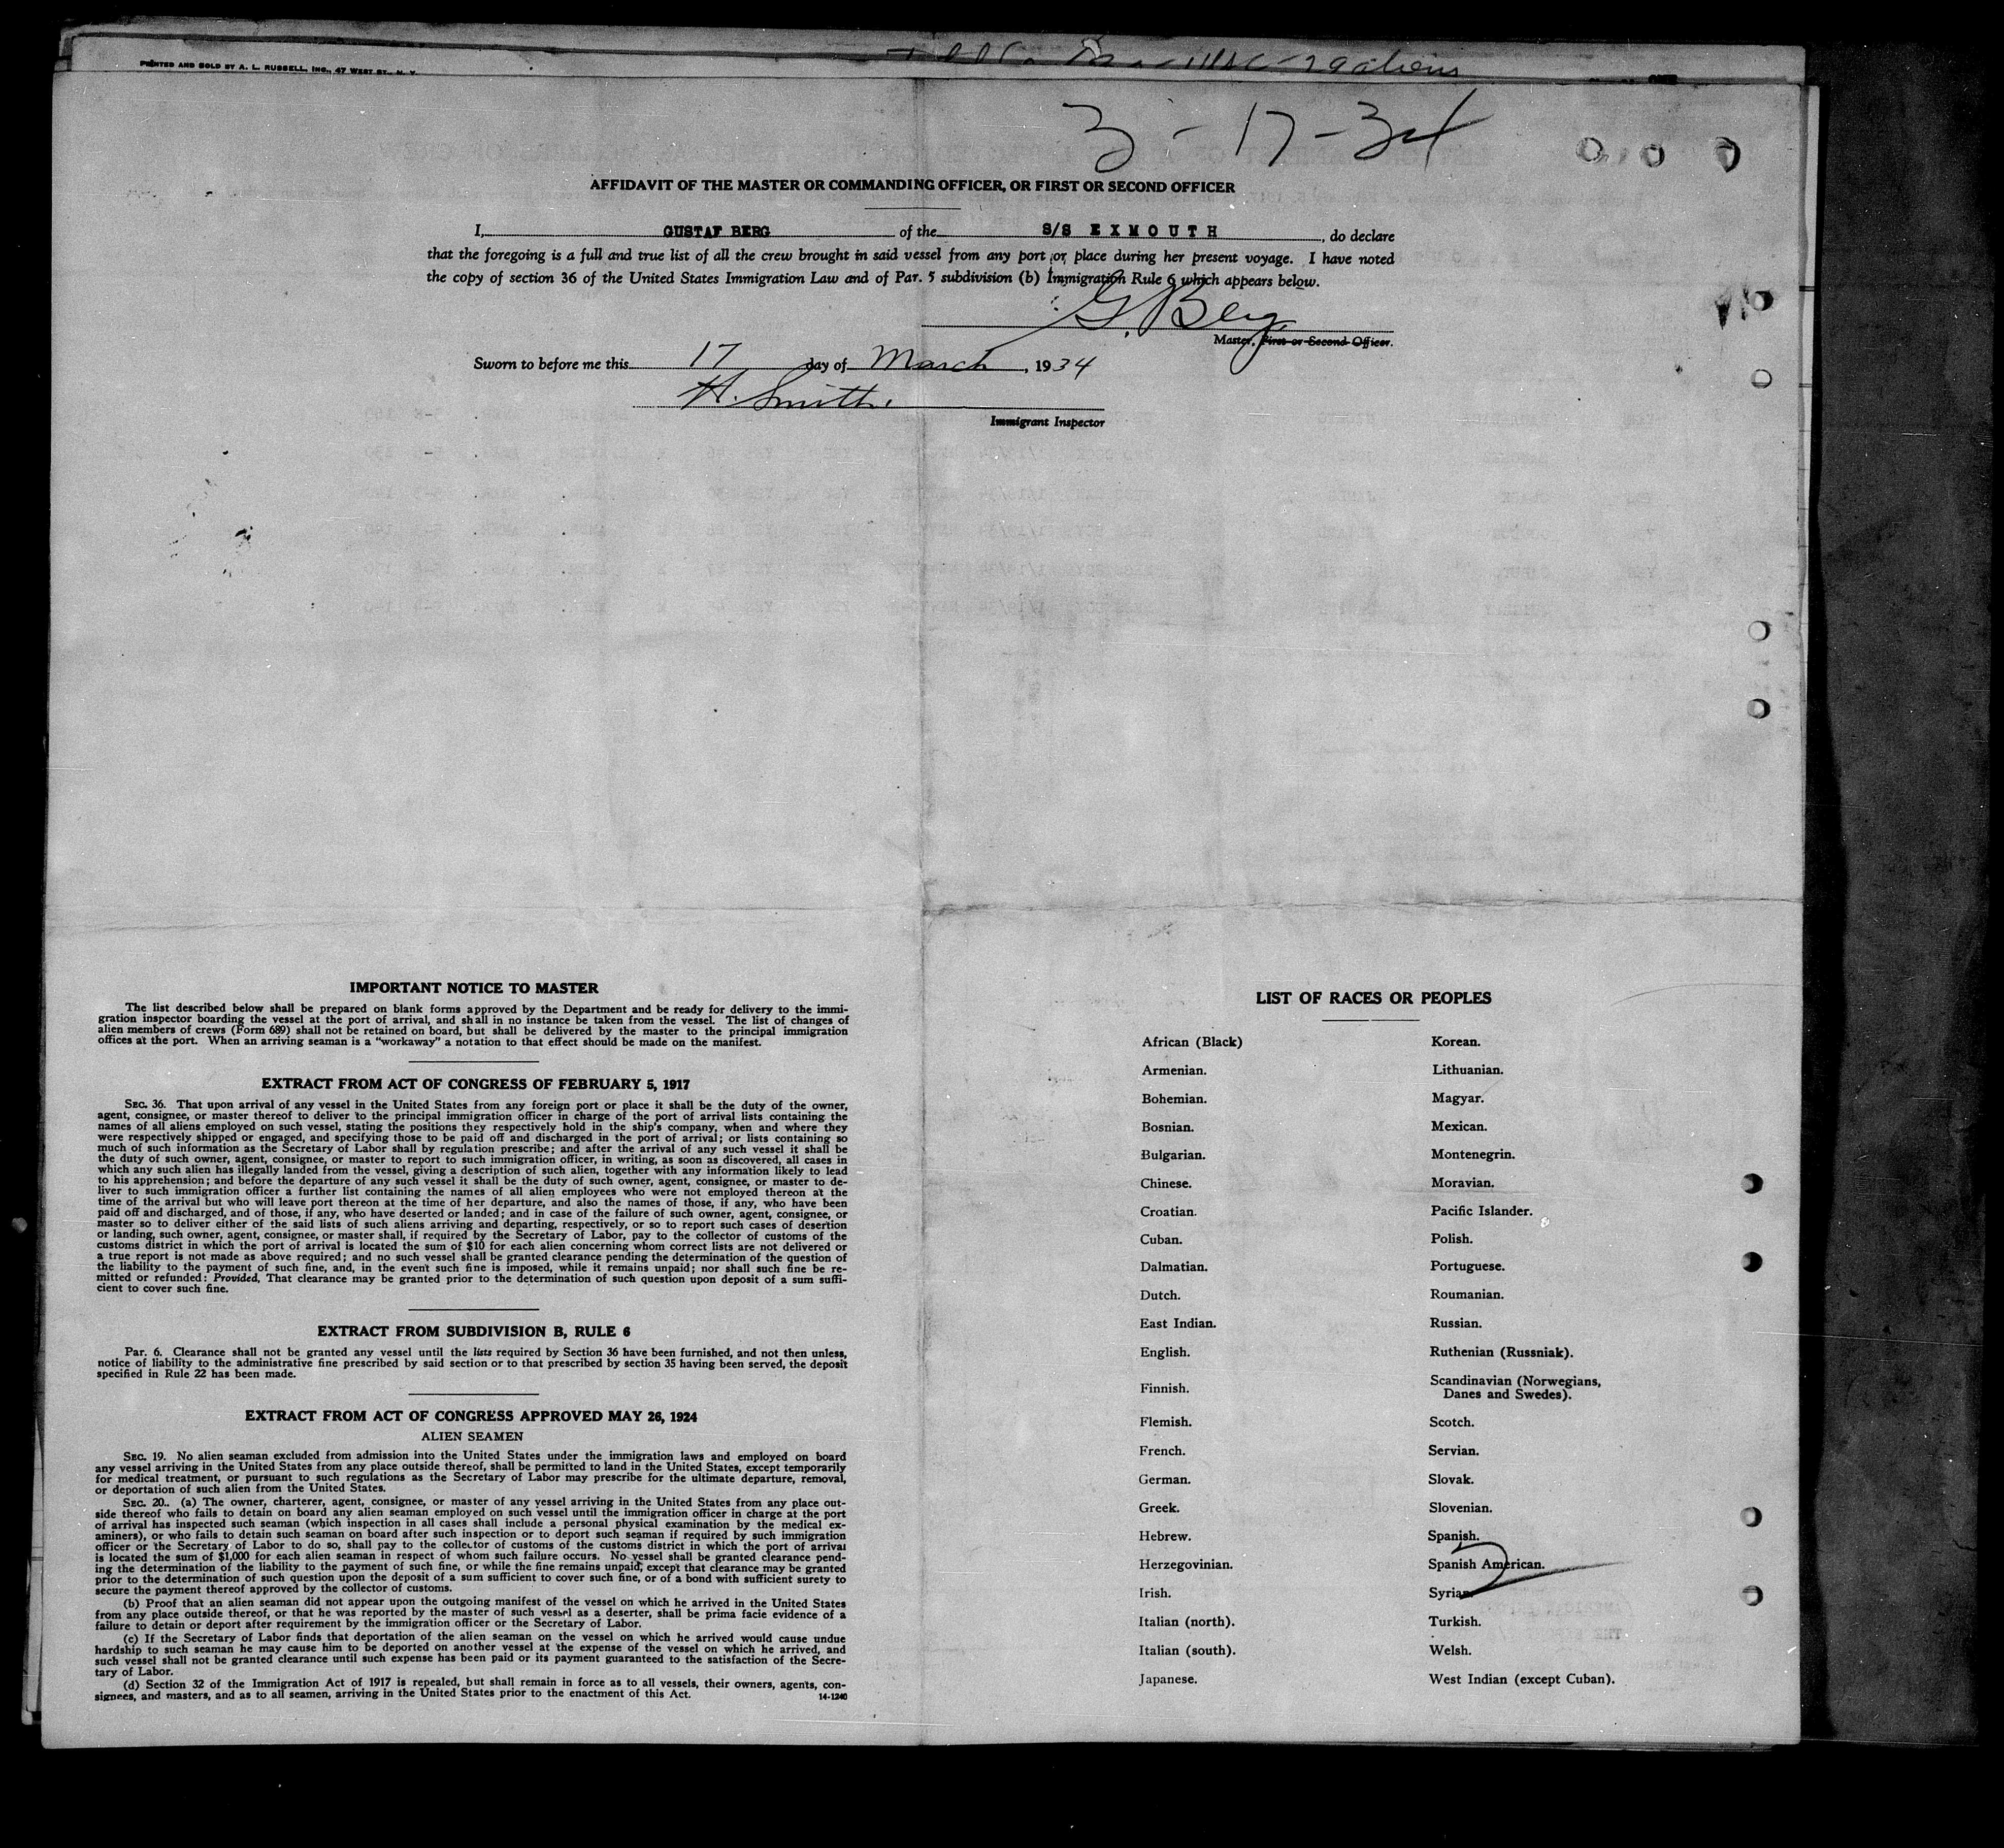 PRINTED AND SOLD BY A. L. RUSSELL, INC., 47 WEST ST., N. Y.
3-17-34
AFFIDAVIT OF THE MASTER OR COMMANDING OFFICER, OR FIRST OR SECOND OFFICER
I, GUSTAF BERG of the S/S EXMOUTH, do declare
that the foregoing is a full and true list of all the crew brought in said vessel from any port or place during her present voyage. I have noted
the copy of section 36 of the United States Immigration Law and of Par. 5 subdivision (b) Immigration Rule 6 which appears below.
G. Berg
Master, First or Second Officer.
Sworn to before me this 17 day of March, 1934
H. Smith.
Immigrant Inspector
IMPORTANT NOTICE TO MASTER
The list described below shall be prepared on blank forms approved by the Department and be ready for delivery to the immi-
gration inspector boarding the vessel at the port of arrival, and shall in no instance be taken from the vessel. The list of changes of
alien members of crews (Form 689) shall not be retained on board, but shall be delivered by the master to the principal immigration
offices at the port. When an arriving seaman is a "workaway" a notation to that effect should be made on the manifest.
EXTRACT FROM ACT OF CONGRESS OF FEBRUARY 5, 1917
SEC. 36. That upon arrival of any vessel in the United States from any foreign port or place it shall be the duty of the owner,
agent, consignee, or master thereof to deliver to the principal immigration officer in charge of the port of arrival lists containing the
names of all aliens employed on such vessel, stating the positions they respectively hold in the ship's company, when and where they
were respectively shipped or engaged, and specifying those to be paid off and discharged in the port of arrival; or lists containing so
much of such information as the Secretary of Labor shall by regulation prescribe; and after the arrival of any such vessel it shall be
the duty of such owner, agent, consignee, or master to report to such immigration officer, in writing, as soon as discovered, all cases in
which any such alien has illegally landed from the vessel, giving a description of such alien, together with any information likely to lead
to his apprehension; and before the departure of any such vessel it shall be the duty of such owner, agent, consignee, or master to de-
liver to such immigration officer a further list containing the names of all alien employees who were not employed thereon at the
time of the arrival but who will leave port thereon at the time of her departure, and also the names of those, if any, who have been
paid off and discharged, and of those, if any, who have deserted or landed; and in case of the failure of such owner, agent, consignee, or
master so to deliver either of the said lists of such aliens arriving and departing, respectively, or so to report such cases of desertion
or landing, such owner, agent, consignee, or master shall, if required by the Secretary of Labor, pay to the collector of customs of the
customs district in which the port of arrival is located the sum of $10 for each alien concerning whom correct lists are not delivered or
a true report is not made as above required; and no such vessel shall be granted clearance pending the determination of the question of
the liability to the payment of such fine, and, in the event such fine is imposed, while it remains unpaid; nor shall such fine be re-
mitted or refunded: Provided, That clearance may be granted prior to the determination of such question upon deposit of a sum suffi-
cient to cover such fine.
EXTRACT FROM SUBDIVISION B, RULE 6
Par. 6. Clearance shall not be granted any vessel until the lists required by Section 36 have been furnished, and not then unless,
notice of liability to the administrative fine prescribed by said section or to that prescribed by section 35 having been served, the deposit
specified in Rule 22 has been made.
EXTRACT FROM ACT OF CONGRESS APPROVED MAY 26, 1924
ALIEN SEAMEN
SEC. 19. No alien seaman excluded from admission into the United States under the immigration laws and employed on board
any vessel arriving in the United States from any place outside thereof, shall be permitted to land in the United States, except temporarily
for medical treatment, or pursuant to such regulations as the Secretary of Labor may prescribe for the ultimate departure, removal,
or deportation of such alien from the United States.
SEC. 20.. (a) The owner, charterer, agent, consignee, or master of any vessel arriving in the United States from any place out-
side thereof who fails to detain on board any alien seaman employed on such vessel until the immigration officer in charge at the port
of arrival has inspected such seaman (which inspection in all cases shall include a personal physical examination by the medical ex-
aminers), or who fails to detain such seaman on board after such inspection or to deport such seaman if required by such immigration
officer or the Secretary of Labor to do so, shall pay to the collector of customs of the customs district in which the port of arrival
is located the sum of $1,000 for each alien seaman in respect of whom such failure occurs. No vessel shall be granted clearance pend-
ing the determination of the liability to the payment of such fine, or while the fine remains unpaid, except that clearance may be granted
prior to the determination of such question upon the deposit of a sum sufficient to cover such fine, or of a bond with sufficient surety to
secure the payment thereof approved by the collector of customs.
(b) Proof that an alien seaman did not appear upon the outgoing manifest of the vessel on which he arrived in the United States
from any place outside thereof, or that he was reported by the master of such vessel as a deserter, shall be prima facie evidence of a
failure to detain or deport after requirement by the immigration officer or the Secretary of Labor.
(c) If the Secretary of Labor finds that deportation of the alien seaman on the vessel on which he arrived would cause undue
hardship to such seaman he may cause him to be deported on another vessel at the expense of the vessel on which he arrived, and
such vessel shall not be granted clearance until such expense has been paid or its payment guaranteed to the satisfaction of the Secre-
tary of Labor.
(d) Section 32 of the Immigration Act of 1917 is repealed, but shall remain in force as to all vessels, their owners, agents, con-
signees, and masters, and as to all seamen, arriving in the United States prior to the enactment of this Act.
14-1240
LIST OF RACES OR PEOPLES
African (Black)
Armenian.
Bohemian.
Bosnian.
Bulgarian.
Chinese.
Croatian.
Cuban.
Dalmatian.
Dutch.
East Indian.
English.
Finnish.
Flemish.
French.
German.
Greek.
Hebrew.
Herzegovinian.
Irish.
Italian (north).
Italian (south).
Japanese.
Korean.
Lithuanian.
Magyar.
Mexican.
Montenegrin.
Moravian.
Pacific Islander.
Polish.
Portuguese.
Roumanian.
Russian.
Ruthenian (Russniak).
Scandinavian (Norwegians,
Danes and Swedes).
Scotch.
Servian.
Slovak.
Slovenian.
Spanish.
Spanish American.
Syrian
Turkish.
Welsh.
West Indian (except Cuban).